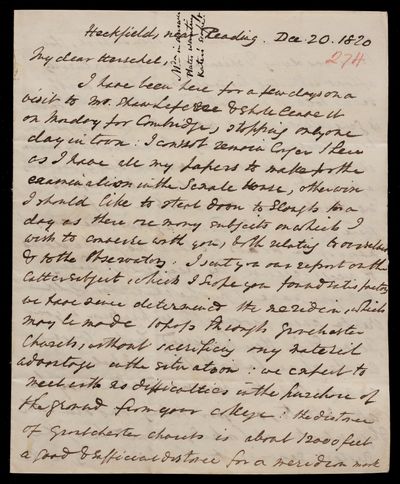 Heckfield, near Reading. Dec. 20. 1820
274
My dear Herschel,
I have been here for a few days on a
visit to Mr. Shaw Lefevre & shall leave it
on Monday for Cambridge, stopping only one
day in town: I cannot remain longer I fear
as I have all my papers to make for the
examination in the Senate house, otherwise
I should like to steal down to Slough for a
day as there are many subjects on which I
wish to converse with you, both relating to ourselves
& to the Observatory. I sent you our report on the
latter subject, which I hope you found satisfactory
we have since determined the meridian, which
may be made to pass through Grantchester
Church, without sacrificing any material
advantage in the situation: we expect to
meet with no difficulties in the purchase of
the ground from your college: the distance
of Grantchester church is about 12000 feet
a good & sufficient distance for a meridian mark